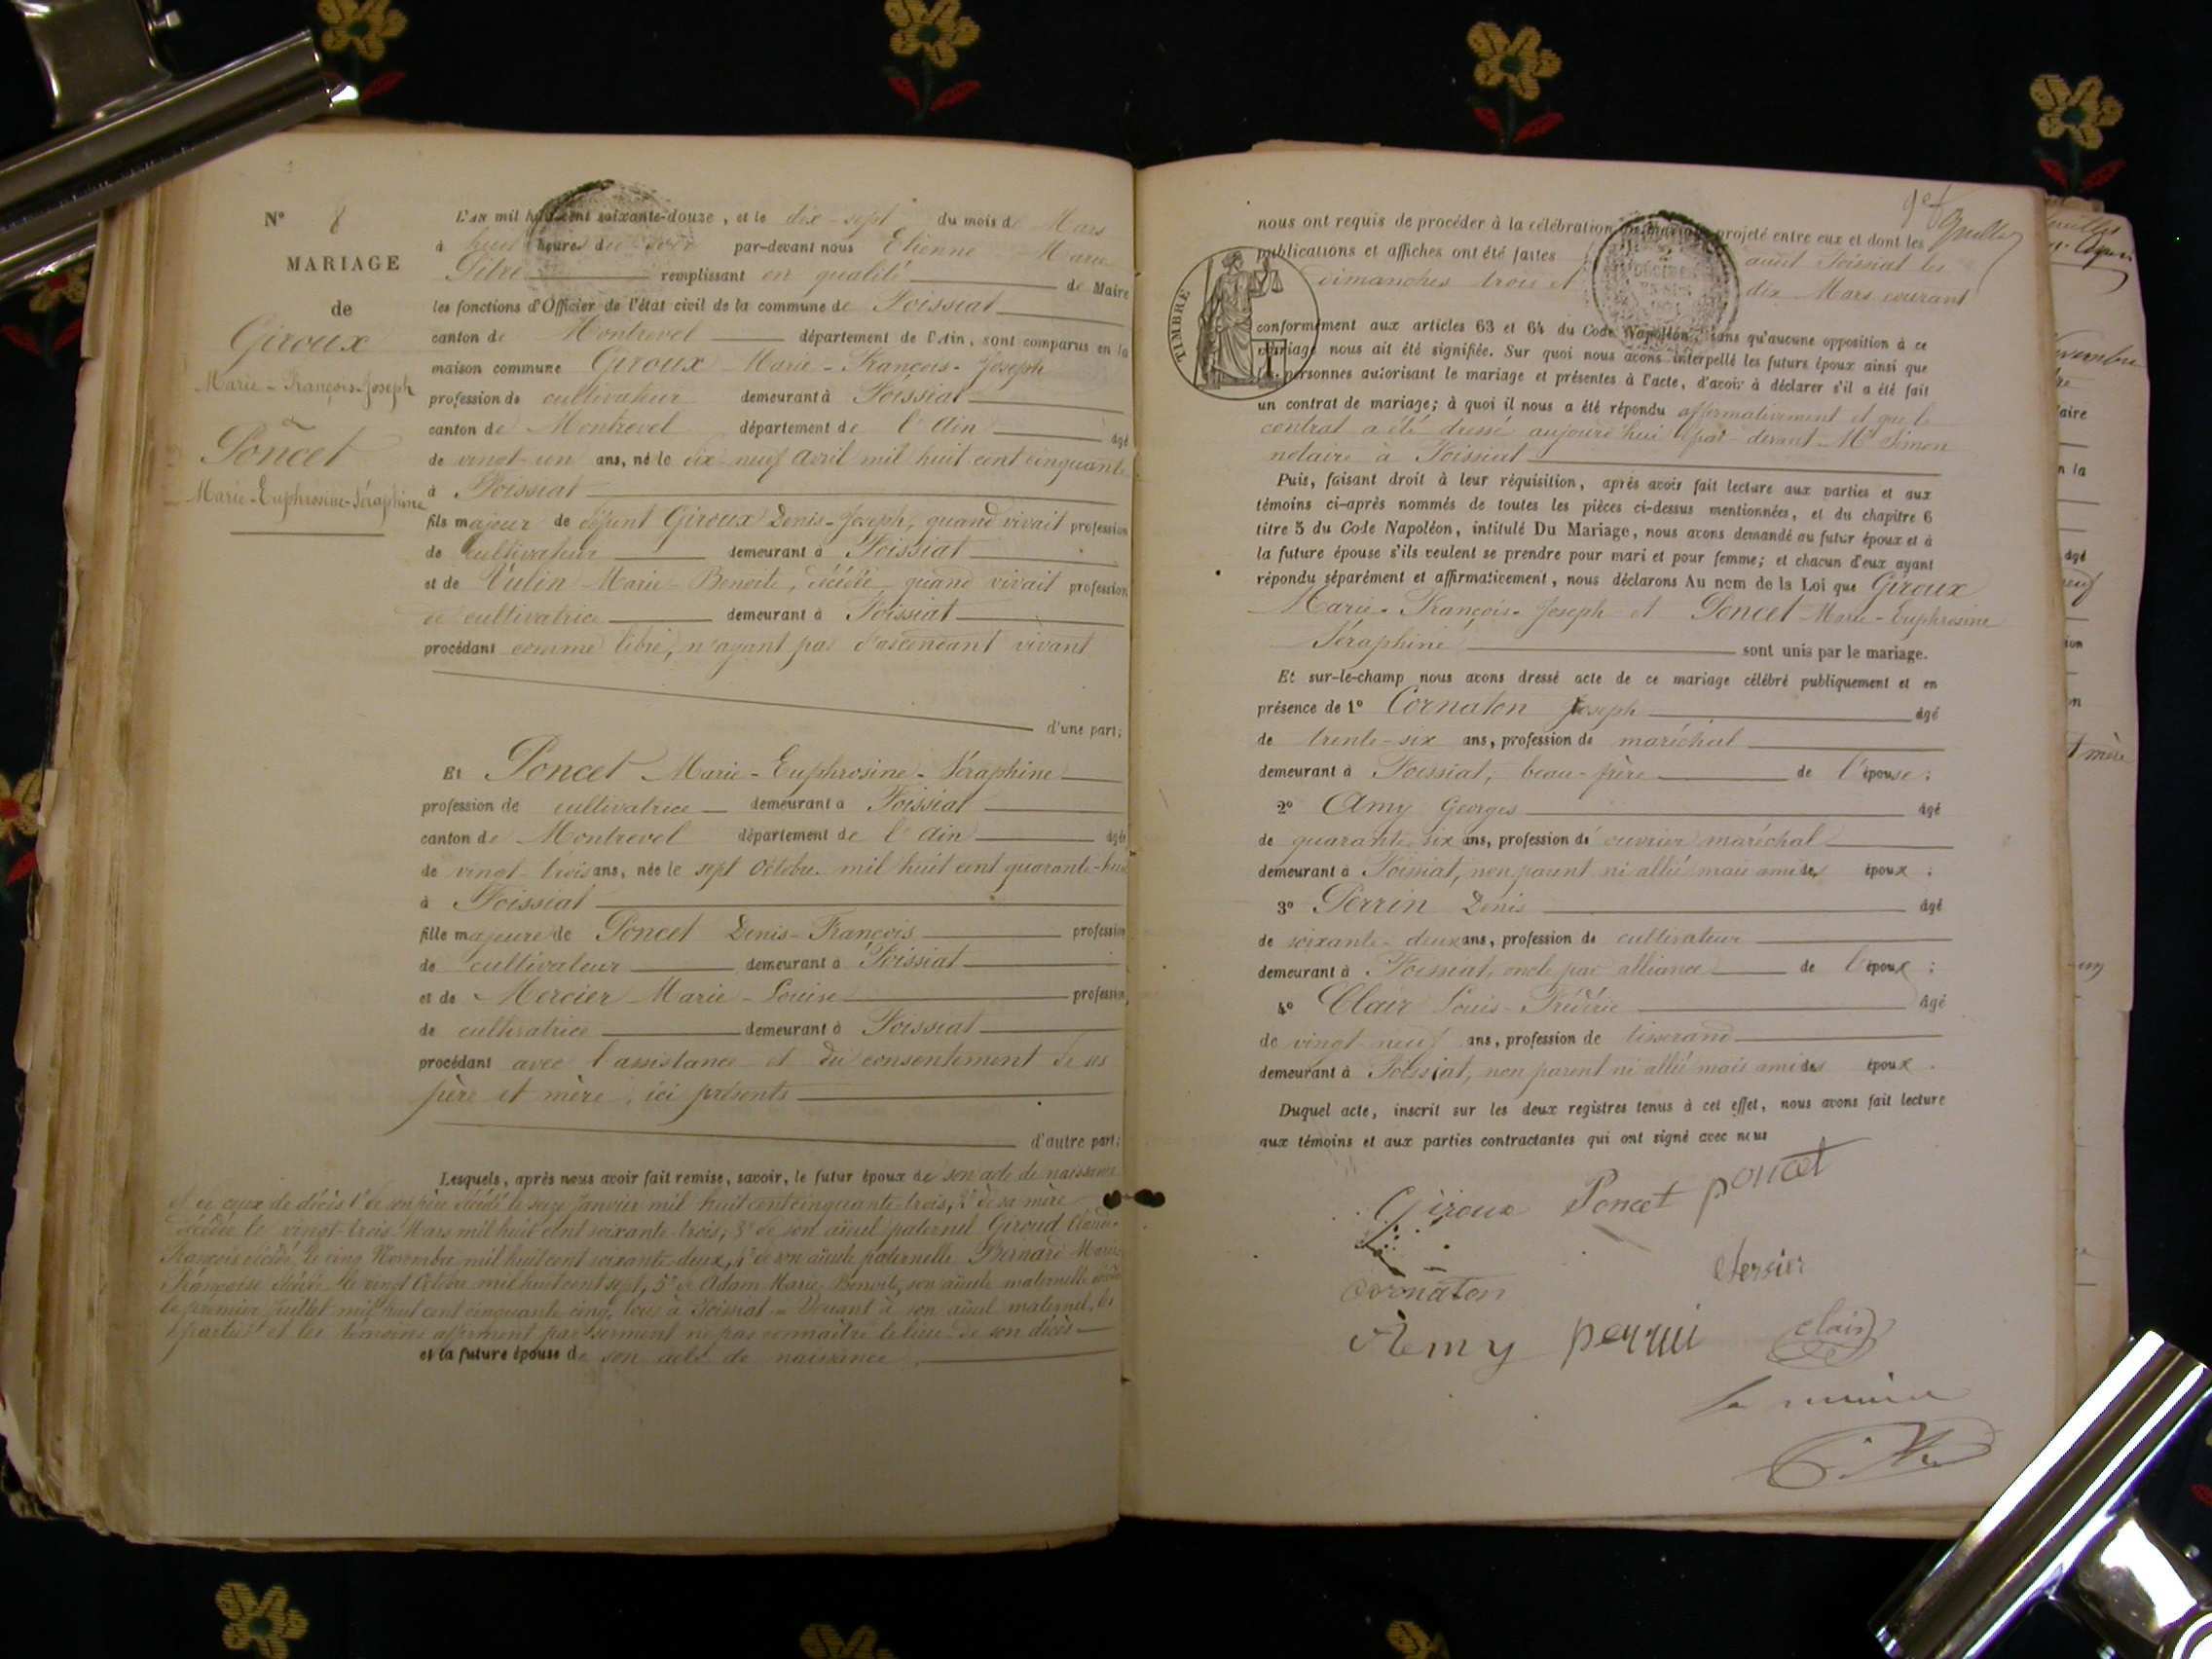 N° 8
MARIAGE
de
Giroux
Marie-François-Joseph
Poncet
Marie-Euphrosine-Séraphine
L'AN mil huit cent soixante-douze, et le dix-sept du mois de Mars
à huit heures du soir par-devant nous Etienne Marie
Pitre remplissant en qualité de Maire
les fonctions d'Officier de l'état civil de la commune de Foissiat
canton de Montrevel département de l'Ain, sont comparus en la
maison commune Giroux Marie-François-Joseph
profession de cultivateur demeurant à Foissiat
canton de Montrevel département de l'Ain âgé
de vingt-un ans, né le dix-neuf Avril mil huit cent cinquante
à Foissiat
fils majeur de défunt Giroux Denis-Joseph, quand vivait profession
de cultivateur demeurant à Foissiat
et de Vulin Marie-Benoite, décédée quand vivait profession
de cultivatrice demeurant à Foissiat
procédant comme libre, n'ayant pas d'ascendant vivant
d'une part;
Et Poncet Marie-Euphrosine-Séraphine
profession de cultivatrice demeurant à Foissiat
canton de Montrevel département de l'Ain âgée
de vingt-trois ans, née le sept Octobre mil huit cent quarante-huit
à Foissiat
fille majeure de Poncet Denis-François profession
de cultivateur demeurant à Foissiat
et de Mercier Marie-Louise profession
de cultivatrice demeurant à Foissiat
procédant avec l'assistance et du consentement de ses
père et mère, ici présents
d'autre part;
Lesquels, après nous avoir fait remise, savoir, le futur époux de son acte de naissance
et de ceux de décès 1° de son père décédé le seize Janvier mil huit cent cinquante trois, 2° de sa mère
décédée le vingt-trois Mars mil huit cent soixante trois, 3° de son aïeul paternel Giroud Claude-
François décédé le cinq Novembre mil huit cent soixante deux, 4° de son aïeule paternelle Bernard Marie
Françoise décédée le vingt Octobre mil huit cent sept, 5° de Adam Marie Benoite, son aïeule maternelle décédée
le premier Juillet mil huit cent cinquante cinq, tous à Foissiat. Quant à son aïeul maternel, les
parties et les témoins affirment par serment ne pas connaître le lieu de son décès
et la future épouse de son acte de naissance
nous ont requis de procéder à la célébration du mariage projeté entre eux et dont les
publications et affiches ont été faites audit Foissiat les
dimanches trois et dix Mars courant
TIMBRE
conformément aux articles 63 et 64 du Code Napoléon, sans qu'aucune opposition à ce
mariage nous ait été signifiée. Sur quoi nous avons interpellé les futurs époux ainsi que
les personnes autorisant le mariage et présentes à l'acte, d'avoir à déclarer s'il a été fait
un contrat de mariage; à quoi il nous a été répondu affirmativement et que le
contrat a été dressé aujourd'hui par devant Me Simon
notaire à Foissiat
Puis, faisant droit à leur réquisition, après avoir fait lecture aux parties et aux
témoins ci-après nommés de toutes les pièces ci-dessus mentionnées, et du chapitre 6
titre 5 du Code Napoléon, intitulé Du Mariage, nous avons demandé au futur époux et à
la future épouse s'ils veulent se prendre pour mari et pour femme; et chacun d'eux ayant
répondu séparément et affirmativement, nous déclarons Au nom de la Loi que Giroux
Marie-François-Joseph et Poncet Marie-Euphrosine
Séraphine sont unis par le mariage.
Et sur-le-champ nous avons dressé acte de ce mariage célébré publiquement et en
présence de 1° Cornaton Joseph âgé
de trente-six ans, profession de maréchal
demeurant à Foissiat, beau-frère de l'épouse;
2° Amy Georges âgé
de quarante-six ans, profession de ouvrier maréchal
demeurant à Foissiat, non parent ni allié mais ami des époux;
3° Perrin Denis âgé
de soixante-deux ans, profession de cultivateur
demeurant à Foissiat, oncle par alliance de l'époux;
4° Clair Louis-Frédéric âgé
de vingt-neuf ans, profession de tisserand
demeurant à Foissiat, non parent ni allié mais ami des époux.
Duquel acte, inscrit sur les deux registres tenus à cet effet, nous avons fait lecture
aux témoins et aux parties contractantes qui ont signé avec nous
Giroux Poncet poncet
Mersier
Cornaton
Amy perrin clair
Le maire